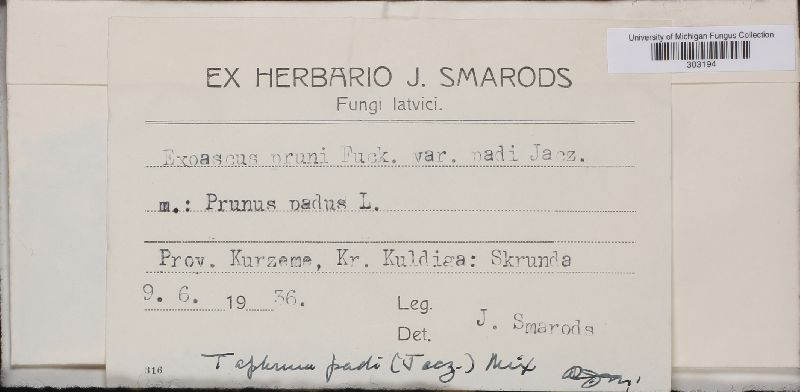 University of Michigan Fungus Collection
303194
EX HERBARIO J. SMARODS
Fungi latvici.
Exoascus pruni Fuck. var. padi Jacz.
m.: Prunus padus L.
Prov. Kurzeme, Kr. Kuldiga: Skrunda
9. 6. 19 36.
Leg.
Det. J. Smarods
316 Taphrina padi (Jacz.) Mix